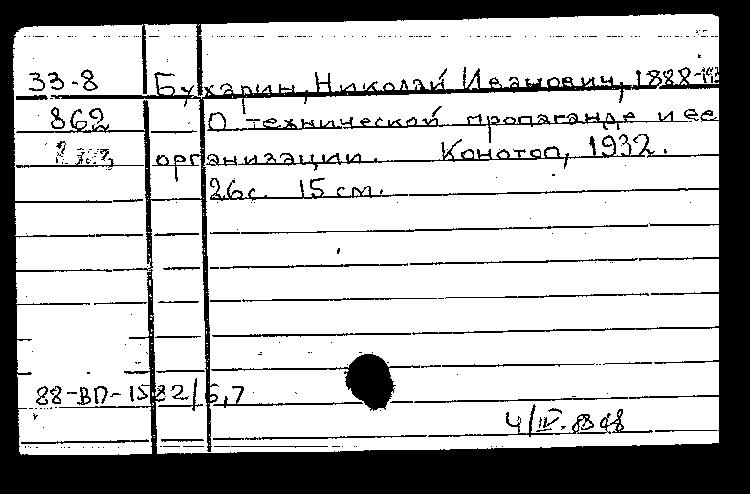 33-8 Бухарин, Николай Иванович, 1888-193
862 О технической пропаганде и ее
организации. Конотоп, 1932.
26с. 15 см.
88-ВП-1582/6,7
4/IV.88